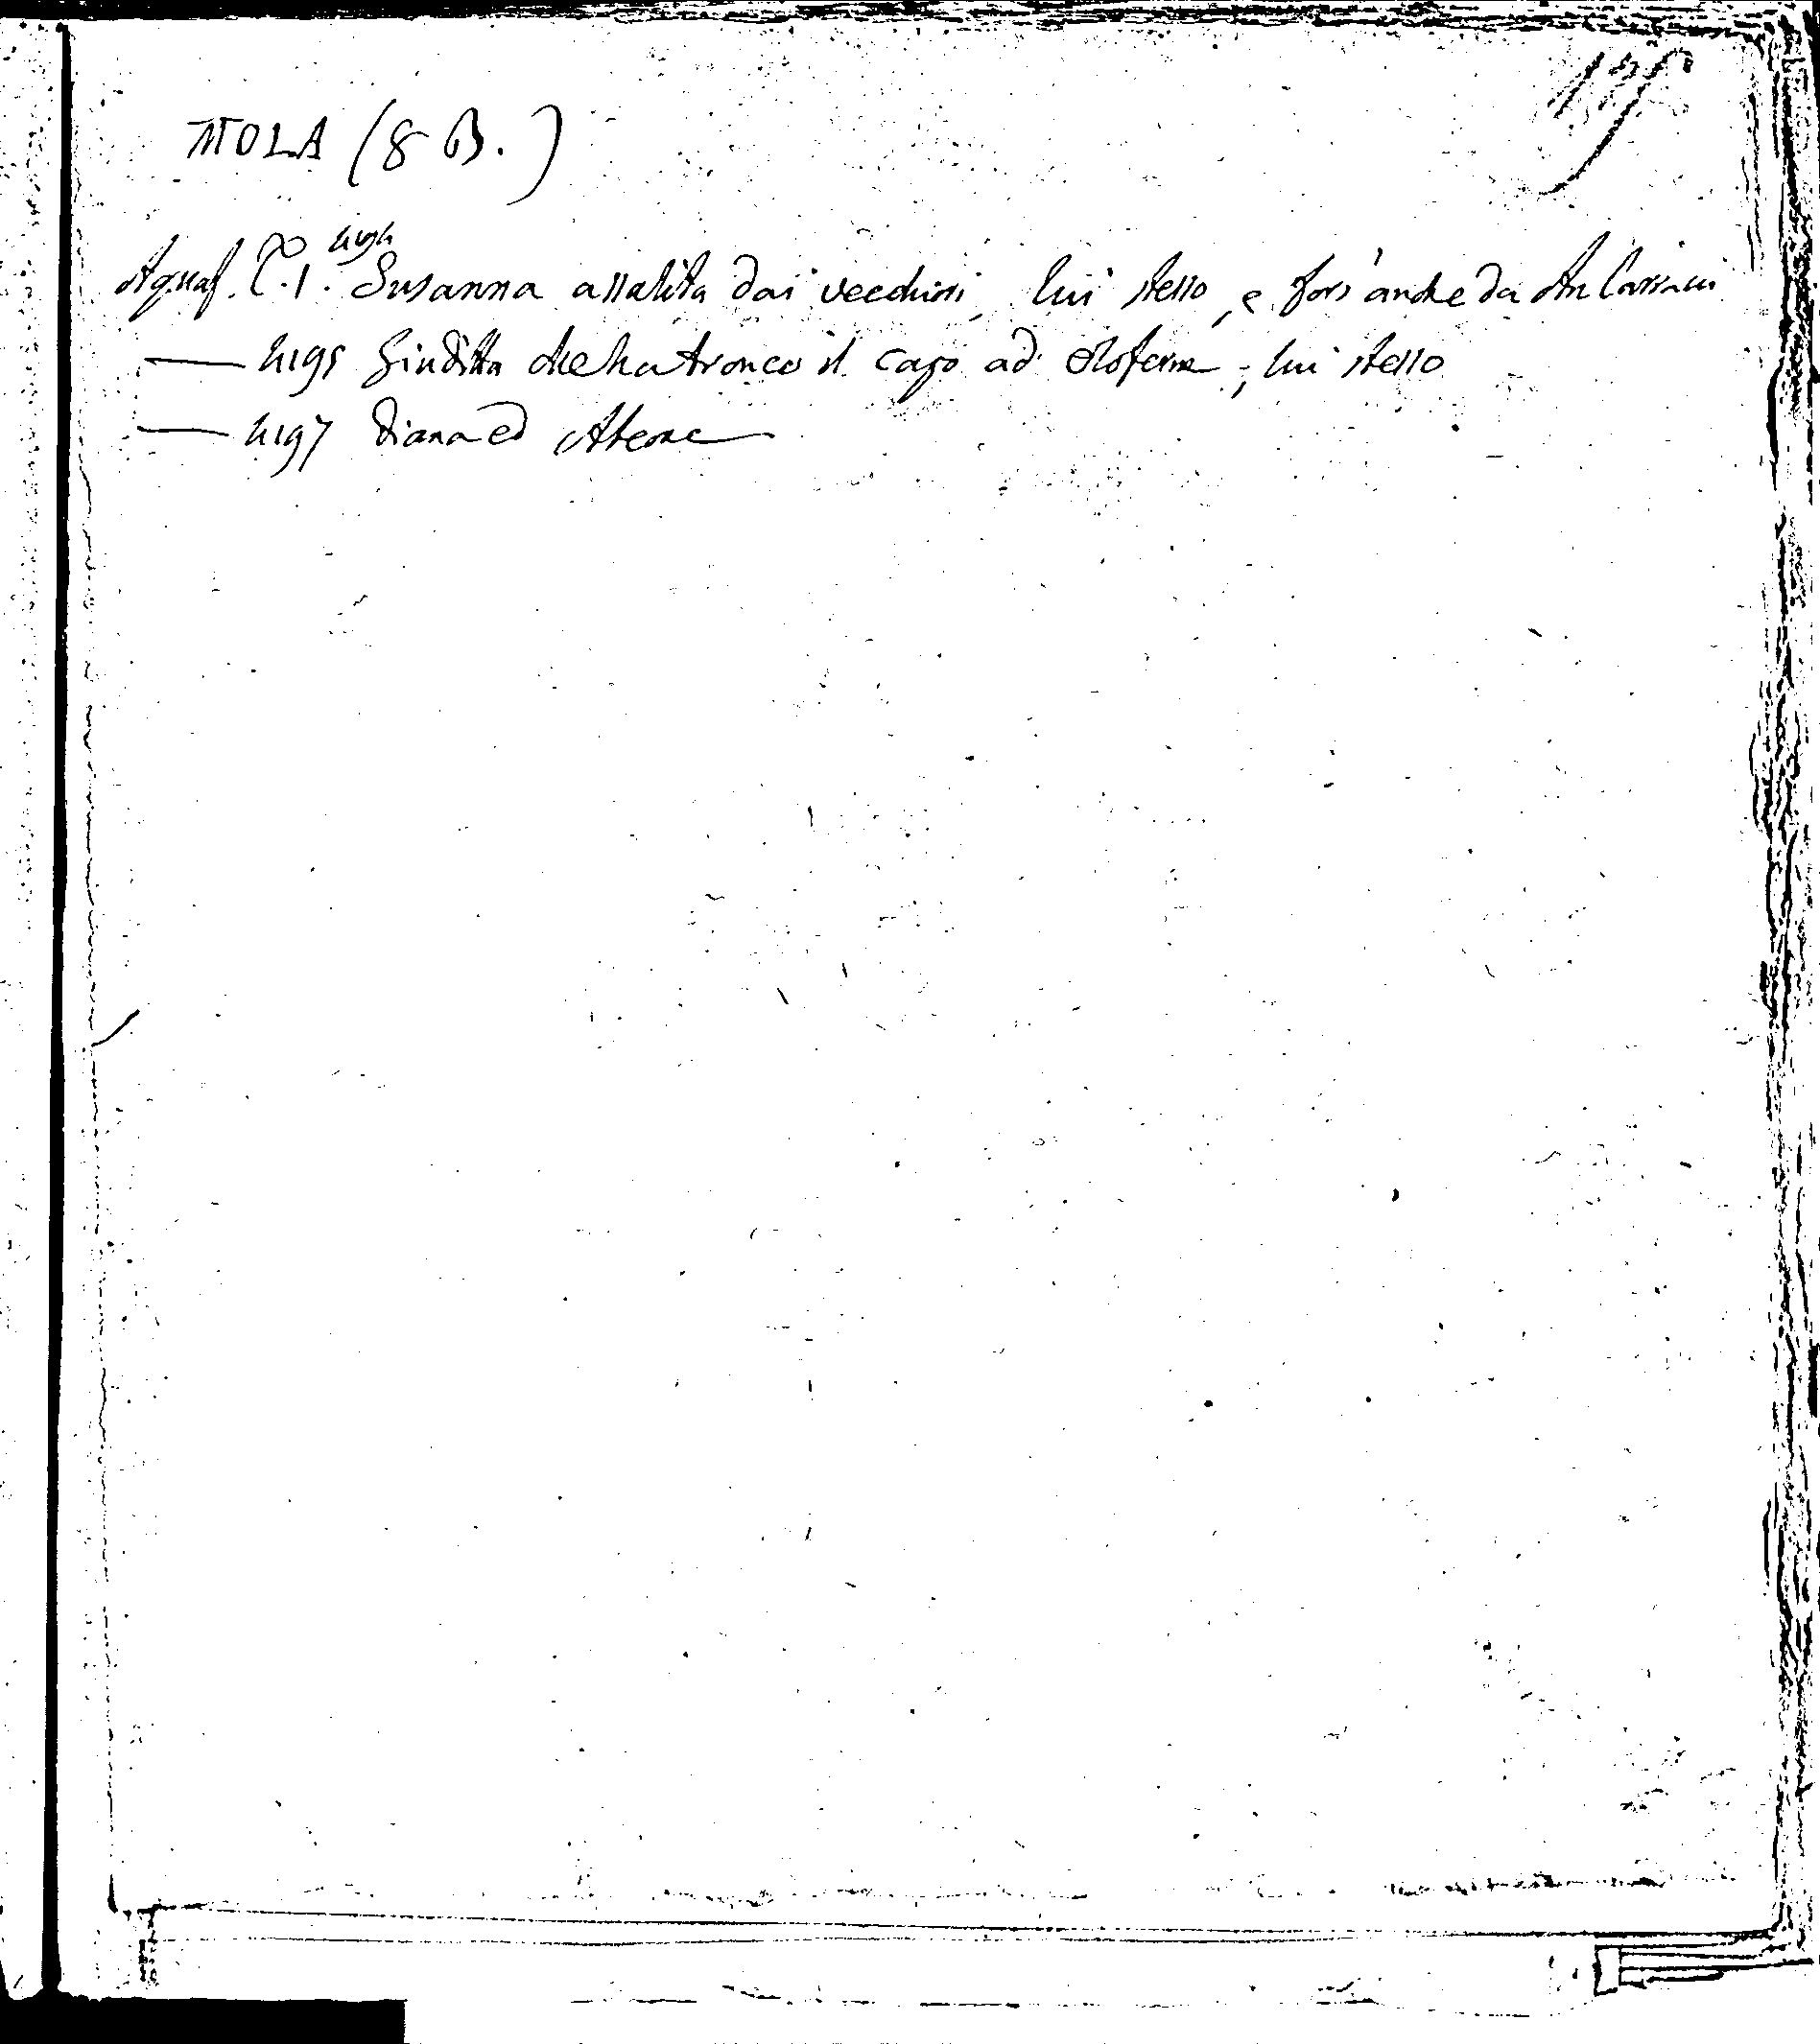 MOLA (G B.)
Aquaf. T. 1. Susanna assalita dai vecchioni, lui stesso, e fors'anche da An Carracci
— 4195 Giuditta che ha tronco il capo ad Oloferne, lui stesso
— 4197 Diana ed Ateone